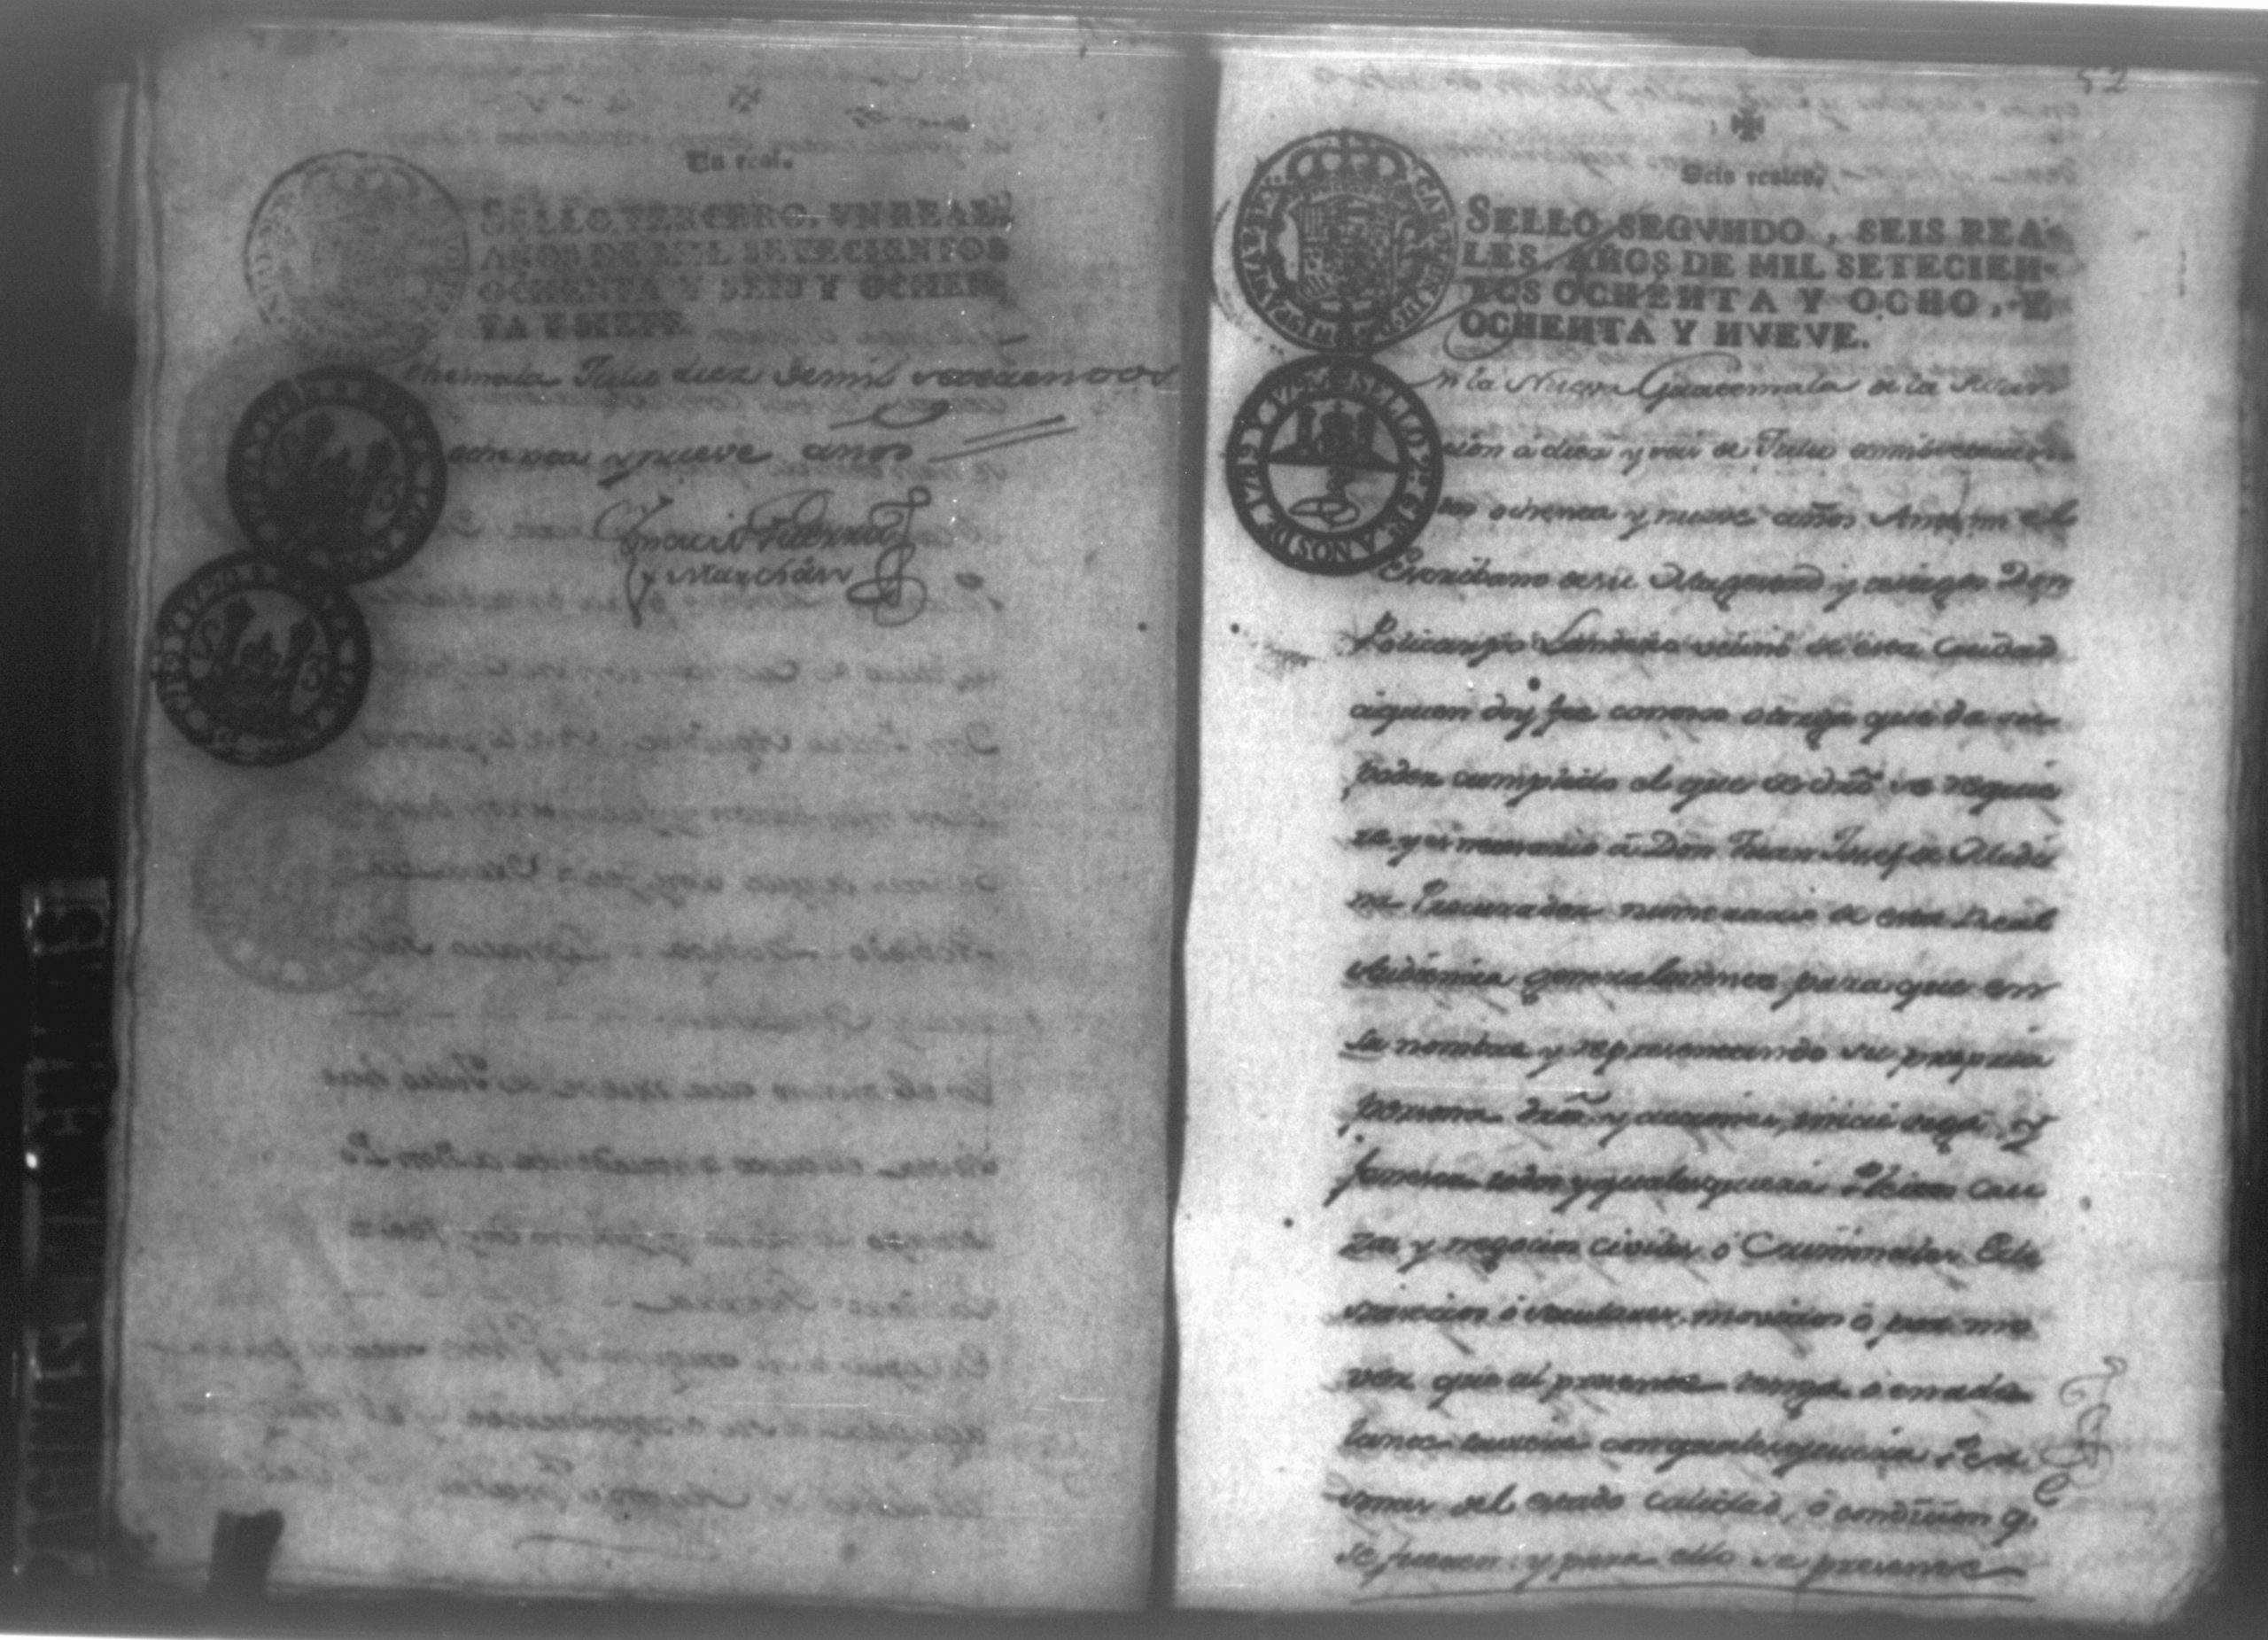 Un real.
SELLO TERCERO, VN REAL,
AÑOS DE MIL SETECIENTOS
OCHENTA Y SEIS Y OCHEN-
TA Y SIETE.
themala Julio diez de mil setecientos
ochenta y nueve años
Ignacio Guerra
y Marchán
52
Seis reales.
SELLO SEGVNDO, SEIS REA-
LES, AÑOS DE MIL SETECIEN-
TOS OCHENTA Y OCHO, Y
OCHENTA Y NVEVE.
SELLO 2º
n la Nueva Guatemala de la Asun
cion á diez y seis de Julio de mil setecien
tos ochenta y nueve años Ante mi el
Escribano de su Magestad y testigos Don
Policarpio vecino de esta Ciudad
aquien doy fee conosco otorga que da su
poder cumplido el que de dro se requie
re y es necesario á Don Juan Josef de Medi
na Procurador numerario de esta Real
Audiencia generalmente para que en
su nombre y representando su propria
persona dro y acciones, inicie siga, y
fenesca todos y qualesquiera Pleitos cau
zas y negocios civiles ó Criminales Ecle
siasticos ó seculares, movidos ó por mo
ver que al presente tenga ó en ade
lante tuviere con qualesquiera Per
sonas del estado calidad, ó condicion q.
se fueren y para ello se presente